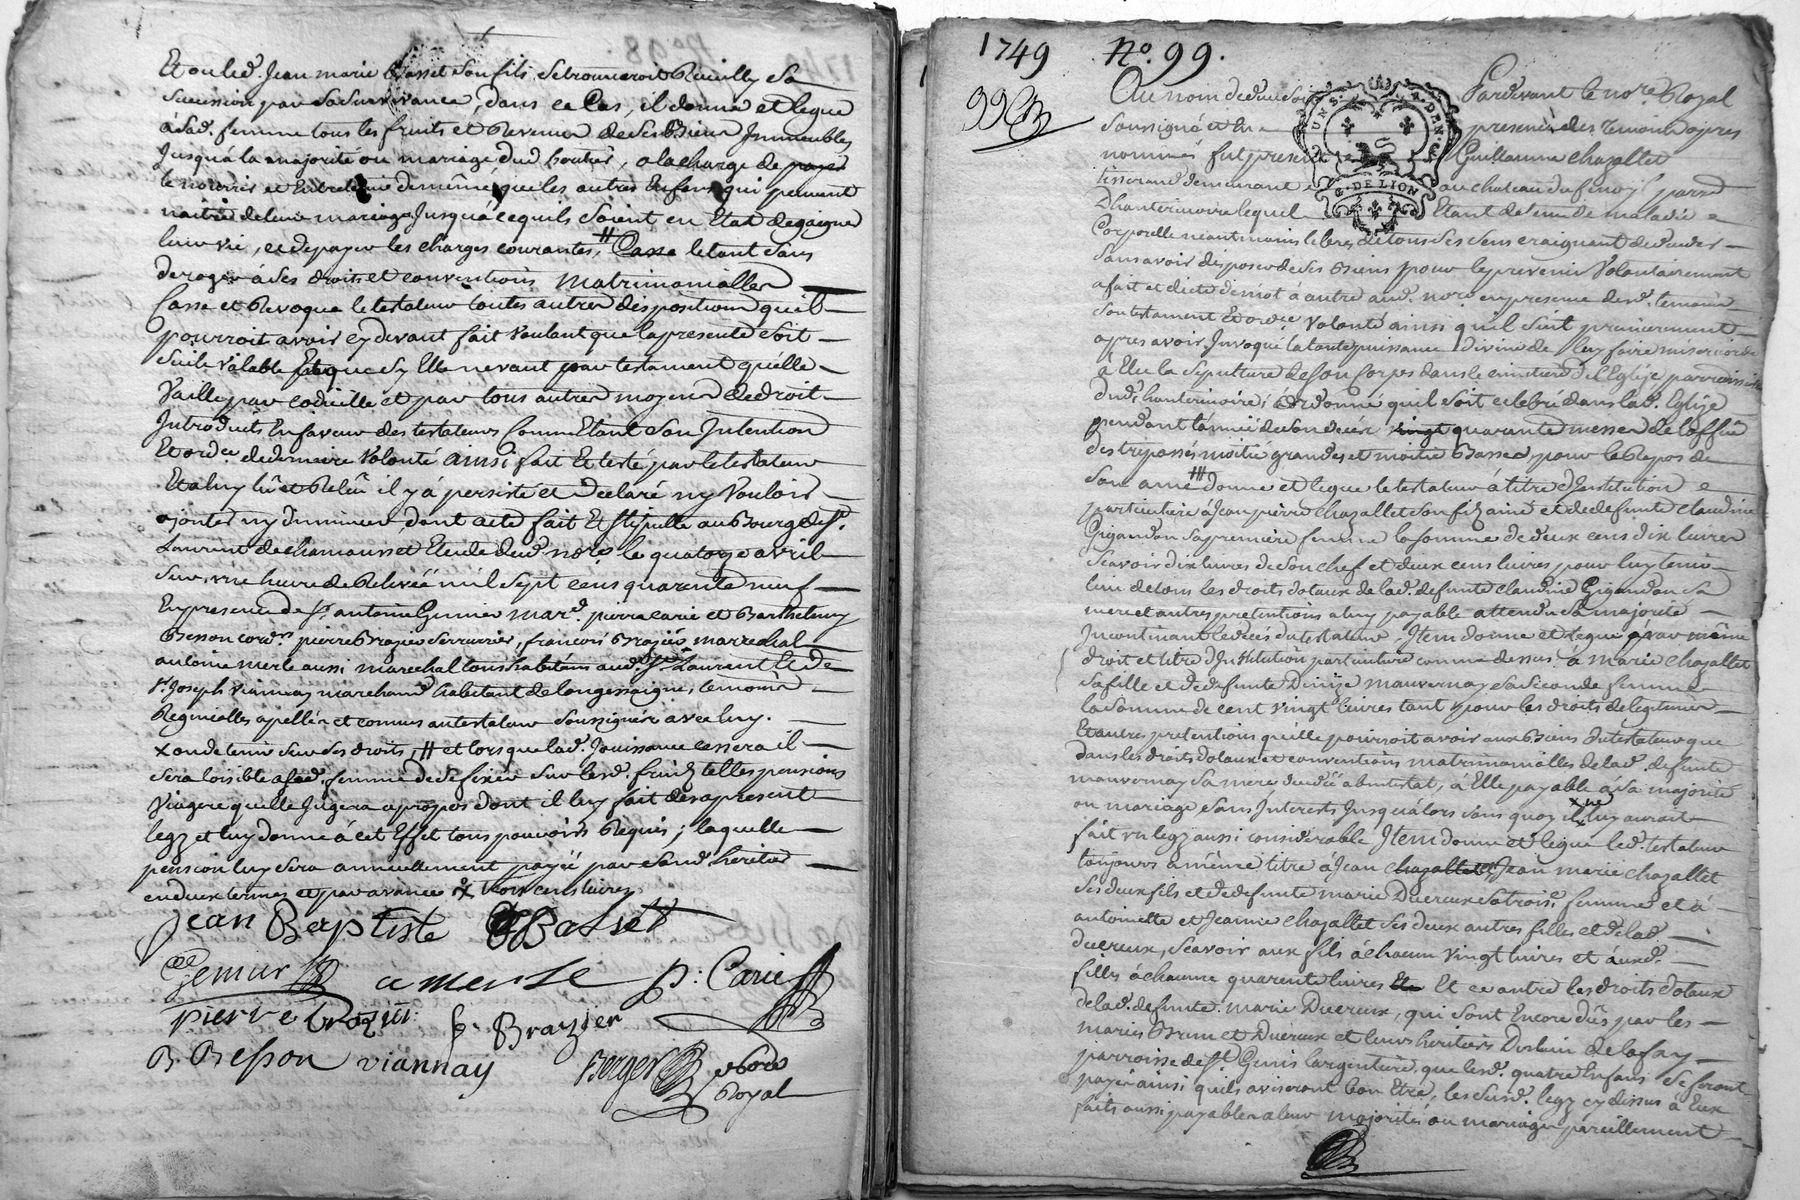 Et ou led. Jean marie Basset son fils, se trouveroit Receuilly sa
succession par sa survivance, dans ce Cas, il donne et legue
à sad. femme tous les fruits et Revenus de ses Biens Immeubles
Jusqu'à la majorité ou mariage dud. heritier, a la charge de payer
le nourrir et Entretenir de même que les autres Enfans qui peuvent
naitre de leur mariage Jusqu'à ce quils soient en Etat de gaigner
leur vie, et de payer les charges courantes, # Casse le tout sans
deroger à ses droits et conventions matrimonialles
Casse et Revoque le testateur toutes autres dispositions qu'il
pourroit avoir cy devant fait voulant que la presente soit
seule valable que sy Elle ne vaut par testament qu'elle
Vaille par codicille et par tous autres moyens de droit
Introduits En faveur des testateurs Comme Etant son Intention
Et ord.ce de derniere Volonté ainsi fait Et testé par le testateur
Et a luy lû et Relû il y à persisté et declaré n'y vouloir
ajouter ny diminuer, dont acte fait Et stipullé au Bourg de St.
Laurent de chamousset Etude dud. no.re le quatorze avril
sur une heure de Relevée mil sept cens quarante neuf
En presence de Sr. antoine Gemier mar.d pierre carie et Barthelemy
Besson cord.rs pierre Brazier serrurier, francois Brazier marechal
antoine merle aussi marechal tous habitans aud. St. Laurent et de
Sr. Joseph viannay marchand habitant de longessaigne, temoins
Requis et appellés et connus au testateur soussignés avec luy.
x ou detenir sur ses droits, # et lorsque lad. Jouissance cessera il
sera loisible a sad. femme de se fixer sur lesd. fruits telles pensions
Viagere quelle Jugera apropos dont il luy fait des apresent
legz et luy donne à cet Effet tous pouvoirs Requis; laquelle
pension luy sera annuellement payée par sond. heritier
en deux termes et par avance x trois cens livres
Jean Baptiste Basset
Gemier a merle p: Carie
pierre brazier f. Brazier
B. Besson viannay Berger no.re
Royal
1749 No. 99.
99
Au nom de dieu soit Pardevant le no.re Royal
soussigné et En presence des temoins apres
nommés fut present Guillaume chazallet
tisserand demeurant au chateau du fenoyl parr.e
D'hauterivoire lequel Etant detenu de maladie
Corporelle neantmoins libre de tous ses sens craignant de deceder
sans avoir disposé de ses Biens pour le prevenir Volontairement
a fait et dicté de mot à autre aud. no.re en presence desd. temoins
son testament Et ord.ce Volonté ainsi qu'il suit premierement
apres avoir Invoqué la toute puissance divine de luy faire misericorde
à Elu la sepulture de son Corps dans le cimetiere de l'Eglise parroissialle
dud. hauterivoire, ordonné qu'il soit celebré dans lad. Eglise
pendant l'année de son deces vingt quarante messes de l'office
des trepassés moitié grandes et moitié Basses, pour le Repos de
son ame # donne et legue le testateur à titre d'Institution
particuliere à Jean pierre chazallet son fils ainé et de defunte claudine
Gigandon sa premiere femme la somme de deux cens dix livres
scavoir dix livres de son chef et deux cens livres pour luy tenir
lieu de tous les droits dotaux de lad. defunte claudine Gigandon sa
mere et autres pretentions a luy payable attendu sa majorité
Incontinant le deces du testateur, Item donne et legue par même
droit et titre d'Institution particuliere comme dessus à marie chazallet
sa fille et de defunte Denize mauvernay sa seconde femme
la somme de cent vingt livres tant pour les droits de legitime
Et autres pretentions qu'elle pourroit avoir aux Biens du testateur que
dans les droits dotaux et conventions matrimonialles de lad. defunte
mauvernay sa mere decedée abintestat, à Elle payable à sa majorité
ou mariage sans Interests Jusqu'alors sans quoy il x ne luy auroit
fait un legz aussi considerable Item donne et legue led. testateur
toujours à même titre à Jean chazallet et Jean marie chazallet
ses deux fils et de defunte marie Ducreux sa trois.e femme et à
antoinette et Jeanne chazallet ses deux autres filles et de lad.
ducreux, scavoir aux fils à chacun vingt livres et auxd.
filles à chacune quarente livres Et Et ce outre les droits dotaux
de lad. defunte marie Ducreux, qui sont Encore dûs par les
mariés Brun et Ducreux et leurs heritiers du lieu de lafay
parroisse de St. Genis largentiere que lesd. quatre Enfans se feront
payer ainsi quils aviseront bon Etre, lesd. legz cy dessus à Eux
faits aussi payables a leur majorités ou mariages pareillement
GEN. DE LION